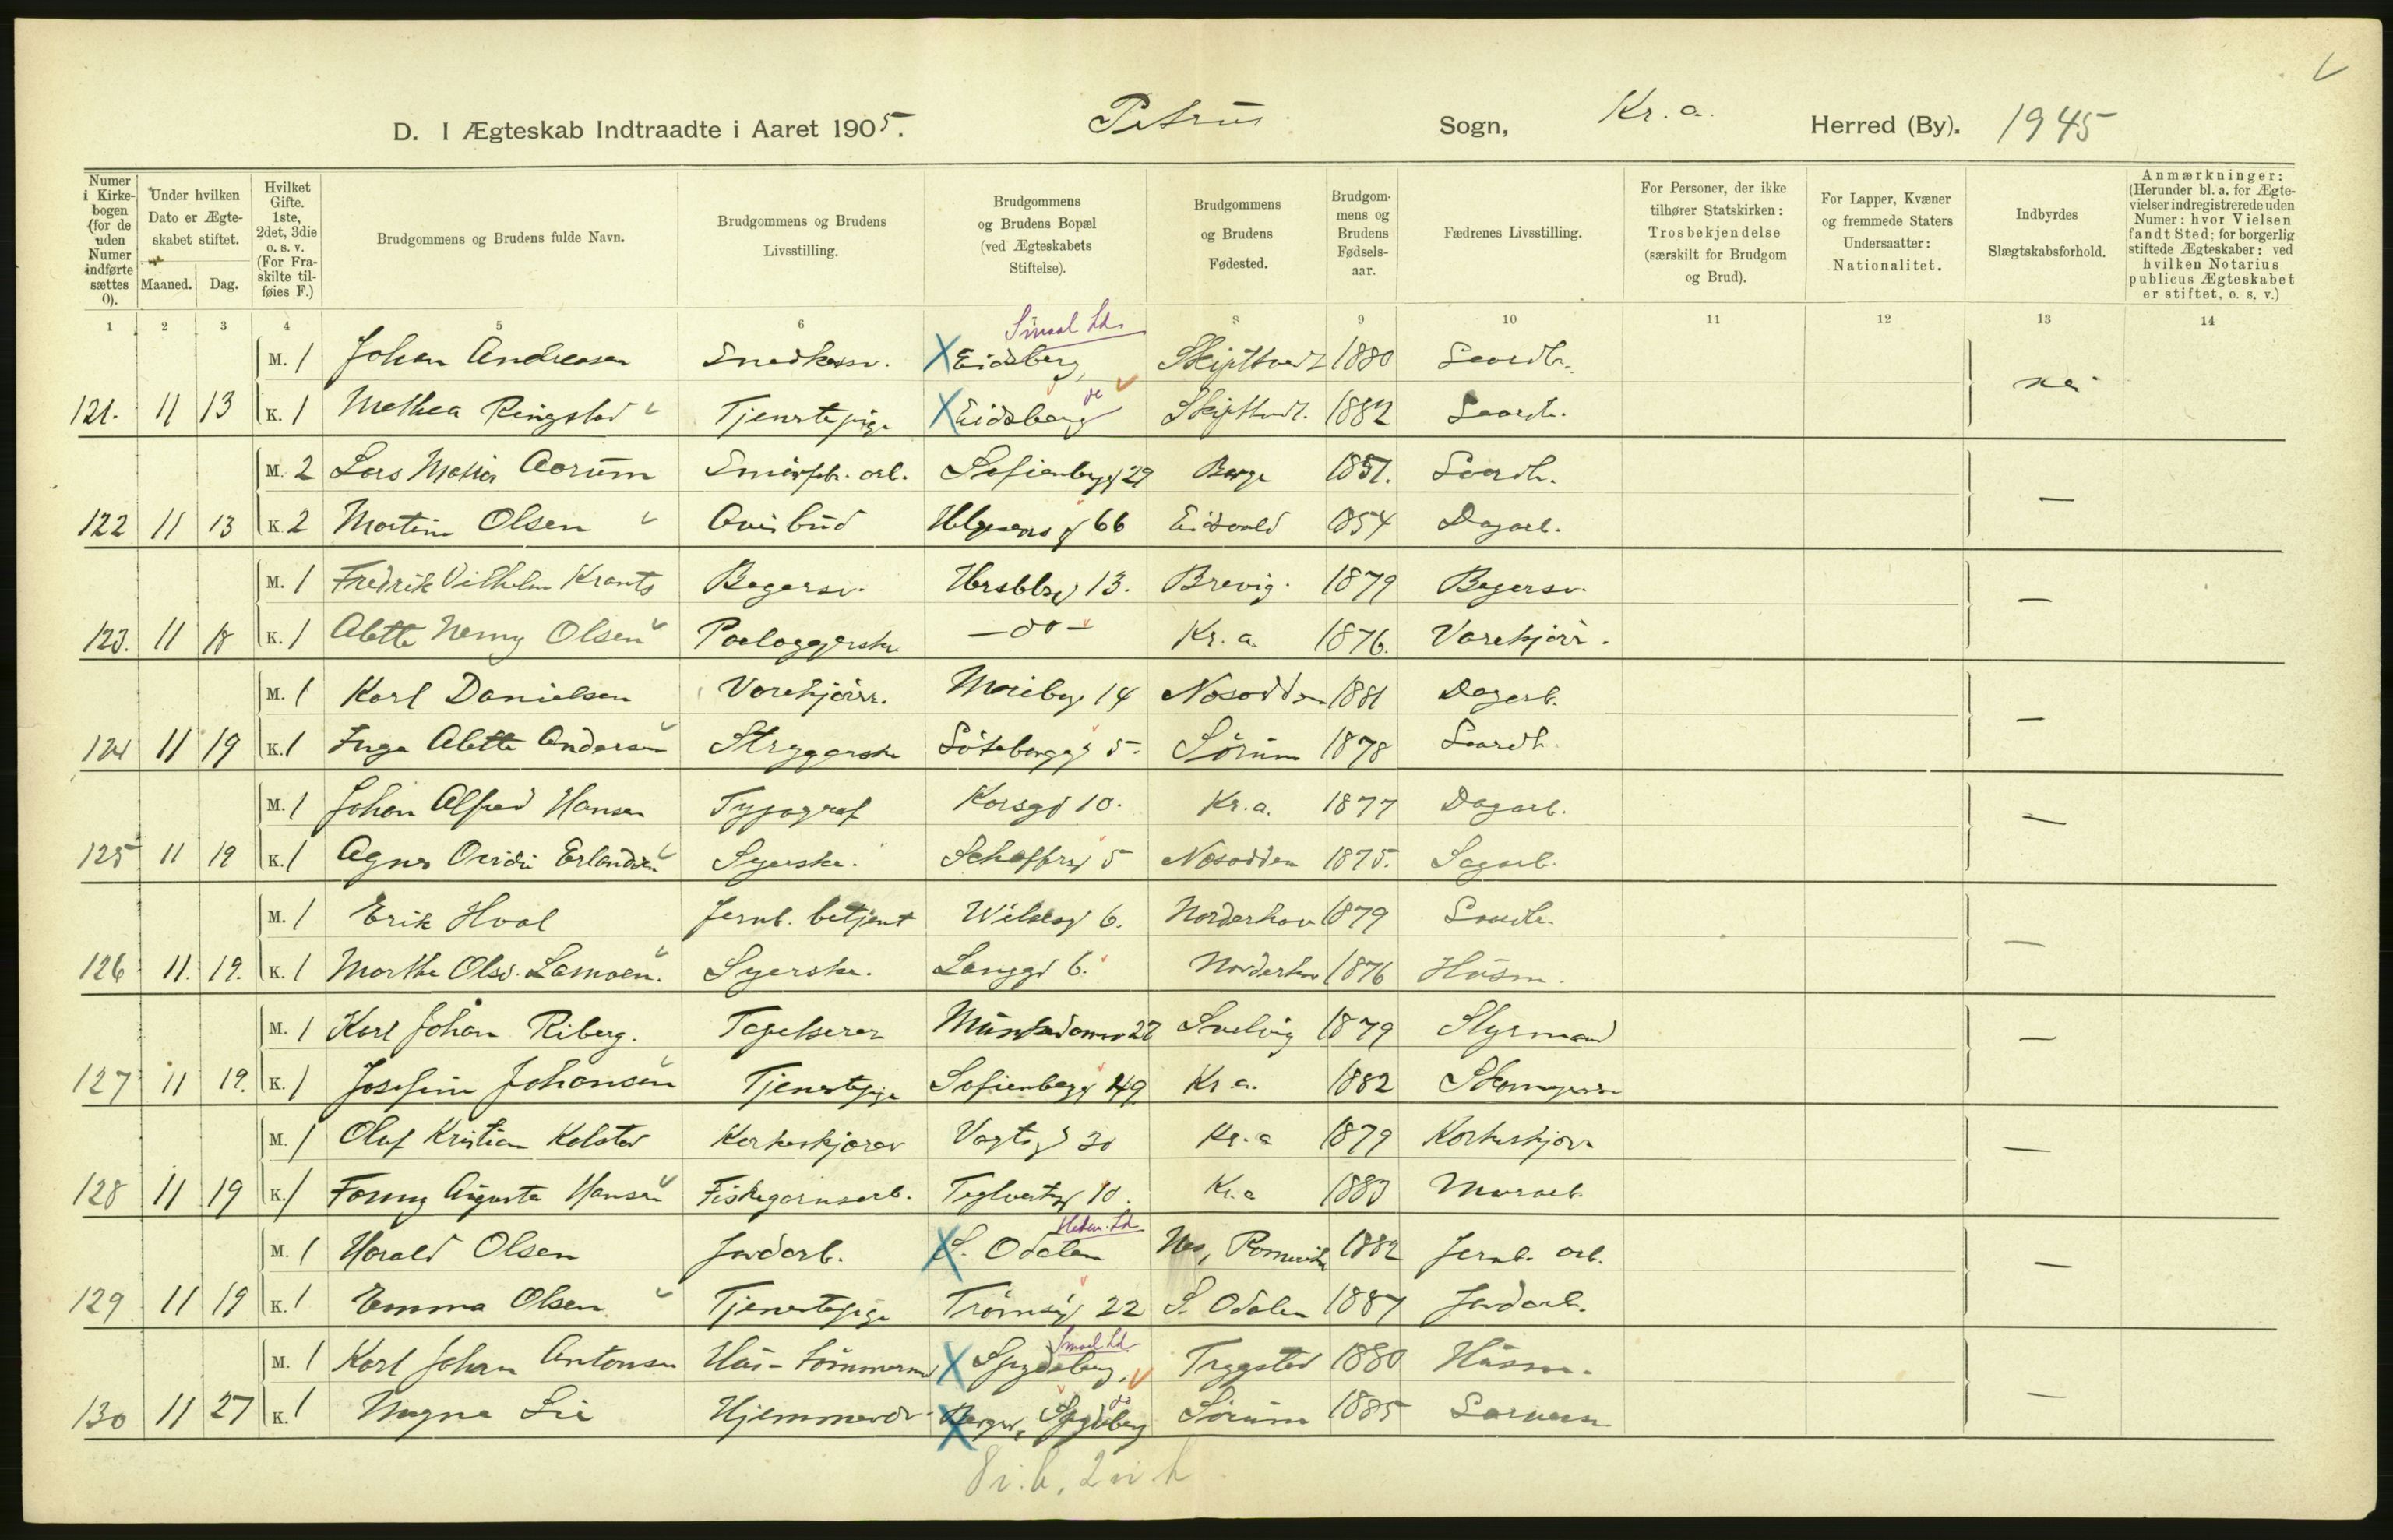 D. I Ægteskab Indtraadte i Aaret 1905. Petrus Sogn, Kr.a. Herred (By). 1945
Numer i Kirkebogen (for de uden Numer indførte sættes 0).
Under hvilken Dato er Ægteskabet stiftet.
Maaned. Dag.
Hvilket Gifte. 1ste, 2det, 3die o. s. v. (For Fraskilte tilføies F.)
Brudgommens og Brudens fulde Navn.
Brudgommens og Brudens Livsstilling.
Brudgommens og Brudens Bopæl (ved Ægteskabets Stiftelse).
Brudgommens og Brudens Fødested.
Brudgommens og Brudens Fødselsaar.
Fædrenes Livsstilling.
For Personer, der ikke tilhører Statskirken: Trosbekjendelse (særskilt for Brudgom og Brud).
For Lapper, Kvæner og fremmede Staters Undersaatter: Nationalitet.
Indbyrdes Slægtskabsforhold.
Anmærkninger: (Herunder bl. a. for Ægtevielser indregistrerede uden Numer: hvor Vielsen fandt Sted; for borgerlig stiftede Ægteskaber: ved hvilken Notarius publicus Ægteskabet er stiftet, o. s. v.)
1 2 3 4 5 6 8 9 10 11 12 13 14
Smaal Ld.
M. 1 Johan Andreasen Snedkersv. Eidsberg, Skiptvedt 1880 Gaardbr.
nei
121. 11 13 K. 1 Mathea Ringstad Tjenestepige Eidsberg do Skiptvedt. 1882 Gaardb.
M. 2 Lars Mathias Aarum Smørfabr. arb. Sofienbergg 29 Borge 1851. Gaardb.
122 11 13 K. 2 Martine Olsen Avisbud Helgesens g 66 Eidsvold 1854 Dagarb. —
M. 1 Fredrik Vilhelm Krants Bagersv. Herslebsg 13. Brevig. 1879 Bagersv.
123. 11 18 K. 1 Alette Nemy Olsen Paalæggerske — do — Kr. a. 1876. Varekjører. —
M. 1 Karl Danielsen Varekjører. Maribog 14 Nesodden 1881 Dagarb.
124 11 19 K. 1 Inga Alette Andersen Strygerske Göteborgg 5. Sørum 1878 Gaardb. —
M. 1 Johan Alfred Hansen Typograf Korsgd 10. Kr.a. 1877 Dagarb.
125 11 19 K. 1 Agnes Ovidie Erlandsen Syerske. Schaffersg 5 Nesodden 1875. Sagarb. —
M. 1 Erik Hval Jernb. betjent Wilsesg 6. Norderhov 1879 Gaardb.
126 11. 19. K. 1 Marthe Olsd. Lamoen. Syerske. Langgd 6. Norderhov 1876 Husm. —
M. 1 Karl Johan Riberg. Tapetserer Munkedamsv 27 Svelvig 1879 Styrmand
127 11 19. K. 1 Josefine Johansen Tjenestepige Sofienbergg 49. Kr a. 1882 Skomagersv. —
M. 1 Oluf Kristian Kolstad Korkeskjærer Vogtsgd 30 Kr. a 1879 Korkeskjær.
128 11 19 K. 1 Fanny Augusta Hansen Fiskegarnsarb. Teglverksg 10. Kr. a 1883 Murarb. —
Hedem. Ld
M. 1 Harald Olsen Jordarb. S. Odalen Nes, Romerike 1882 Jernb. arb.
129 11 19 K. 1 Emma Olsen Tjenestepige Tromsøg 22 S. Odalen 1887 Jordarb. —
Smaal Ld.
M. 1 Karl Johan Antonsen Hus-tømmermd Spydeberg. Trygstad 1880 Husm.
130 11 27 K. 1 Magna Lie Hjemmevær. Berger, Spydeberg do Sørum 1885 —
8 i. b, 2 i. h